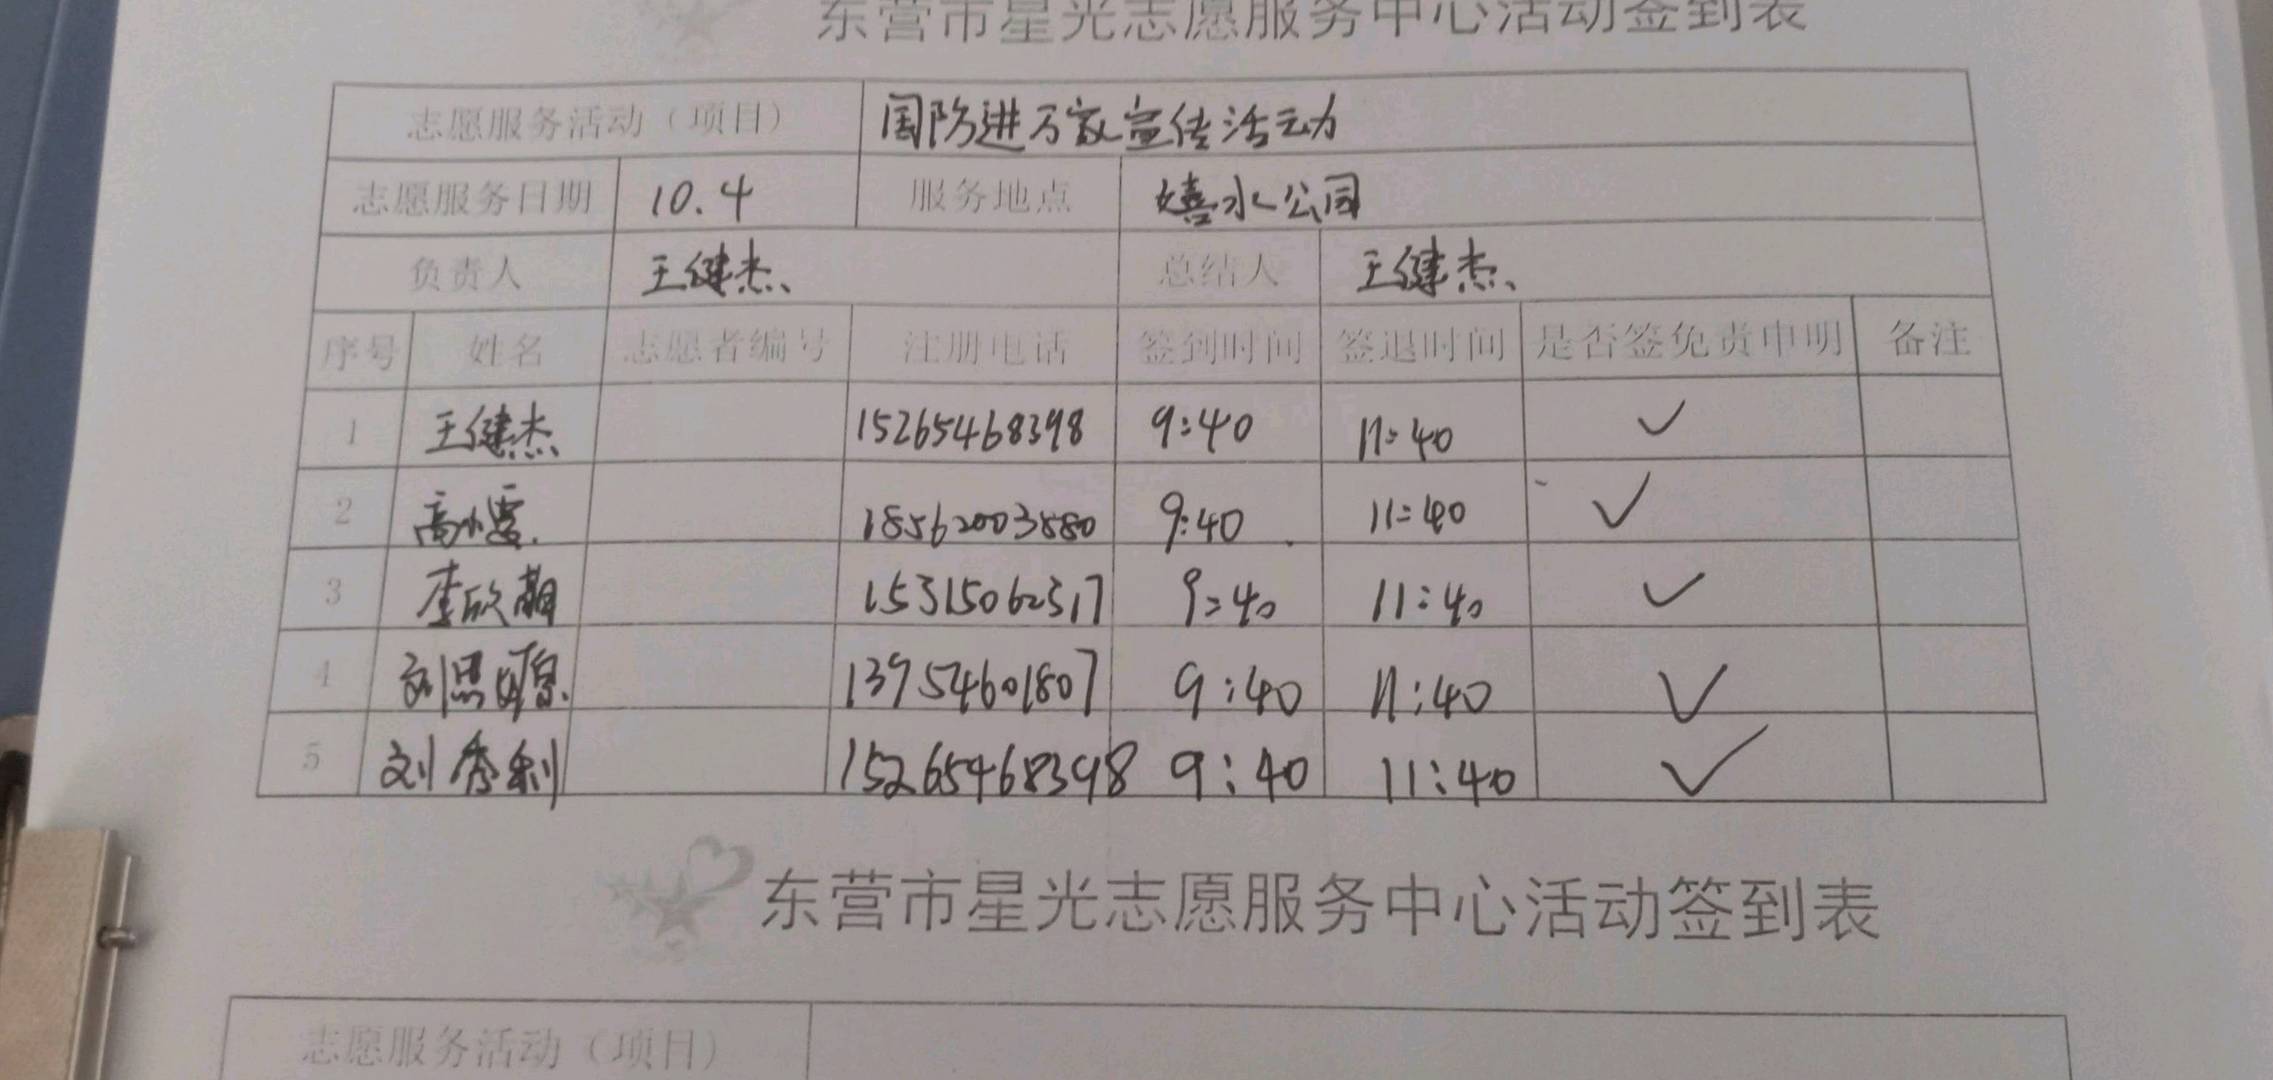 东营市星光志愿服务中心活动签到表
志愿服务活动（项目） 国防进万家宣传活动
志愿服务日期 10.4 服务地点 嬉水公园
负责人 王健杰 总结人 王健杰
序号 姓名 志愿者编号 注册电话 签到时间 签退时间 是否签免责申明 备注
1 王健杰 15265468398 9:40 11:40 ✓
2 高小雯 18562003880 9:40 11:40 ✓
3 李欣萌 15315062317 9:40 11:40 ✓
4 刘思 13954601807 9:40 11:40 ✓
5 刘秀利 15265468398 9:40 11:40 ✓
东营市星光志愿服务中心活动签到表
志愿服务活动（项目）